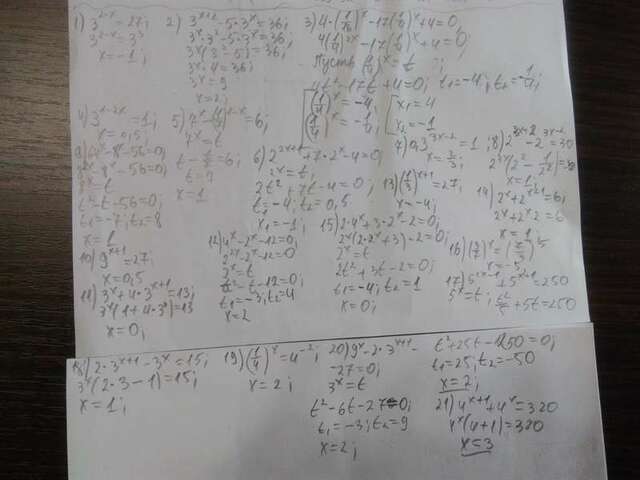 1) 3^{2-x} = 27;
3^{2-x} = 3^3
x = -1;
2) 3^{x+2} - 5·3^x = 36;
3^x·3^2 - 5·3^x = 36;
3^x(3^2 - 5) = 36;
3^x·4 = 36;
3^x = 9
x = 2;
3) 4·(1/16)^x - 17(1/4)^x + 4 = 0;
4(1/4)^{2x} - 17(1/4)^x + 4 = 0;
Пусть (1/4)^x = t
4t^2 - 17t + 4 = 0; t_1 = -4; t_2 = -1/4;
(1/4)^x = -4
(1/4)^x = -1/4
x_1 = 4
x_2 = -1
4) 3^{1-2x} = 1;
x = 0,5
5)
7^x = t
= 6;
x = 1
6) 2^{2x+1} + 7·2^x - 4 = 0;
2^x = t;
2t^2 + 7t - 4 = 0;
t_1 = -4; t_2 = 0,5
x_1 = -1;
7) 0,3^{3x-2} = 1;
x = 2/3;
8)
= 30
x = 1;
9)
- 8^x - 56 = 0;
- 8^x - 56 = 0;
= t
t^2 - t - 56 = 0;
t_1 = -7; t_2 = 8
x = 1
10) 9^{x+1} = 27;
x = 0,5
11) 3^x + 4·3^{x+1} = 13;
3^x(1 + 4·3) = 13
x = 0;
12) 4^x - 2^x - 12 = 0;
2^{2x} - 2^x - 12 = 0
2^x = t
t^2 - t - 12 = 0;
t_1 = -3; t_2 = 4
x = 2
13) (1/3)^{x+1} = 27;
x = -4;
14) 2^x + 2^{x+1} = 6;
2^x + 2^x·2 = 6
x = 1
15) 2·4^x + 3·2^x - 2 = 0;
2^x(2·2^x + 3) - 2 = 0;
2^x = t
2t^2 + 3t - 2 = 0;
t_1 = -4; t_2 = 1
x = 0;
16)
17)
= 250
5^x = t;
+ 5t = 250
18) 2·3^{x+1} - 3^x = 15;
3^x(2·3 - 1) = 15;
x = 1;
19) (1/4)^x = 4^{-2};
x = 2;
20) 9^x - 2·3^{x+1} -
- 27 = 0;
3^x = t
t^2 - 6t - 27 = 0;
t_1 = -3; t_2 = 9
x = 2;
t_1 = 25; t_2 = -50
x = 2;
21) 4^{x+1} + 4^x = 320
4^x(4 + 1) = 320
x = 3